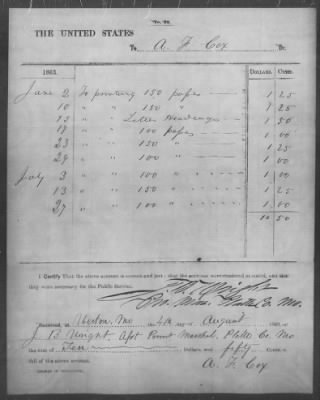 No. 22.
THE UNITED STATES
To A. F. Cox Dr.
1863. DOLLARS. CENTS.
June 2 To printing 150 passes 1 25
10 " " 150 " 1 25
15 " " Letter Headings 1 50
18 " " 100 passes 1 00
23 " " 150 " 1 25
29 " " 100 " 1 00
July 3 " " 100 " 1 00
13 " " 150 " 1 25
27 " " 100 " 1 00
10 50
I CERTIFY That the above account is correct and just; that the services were rendered as stated, and that
they were necessary for the Public Service.
Pro. Mar. Platte Co. Mo.
Received, at Weston, Mo the 4th day of August 1863, of
J B Wright Asst Provost Marshal, Platte Co. Mo
the sum of Ten Dollars and fifty Cents, in
full of the above account.
A. F. Cox